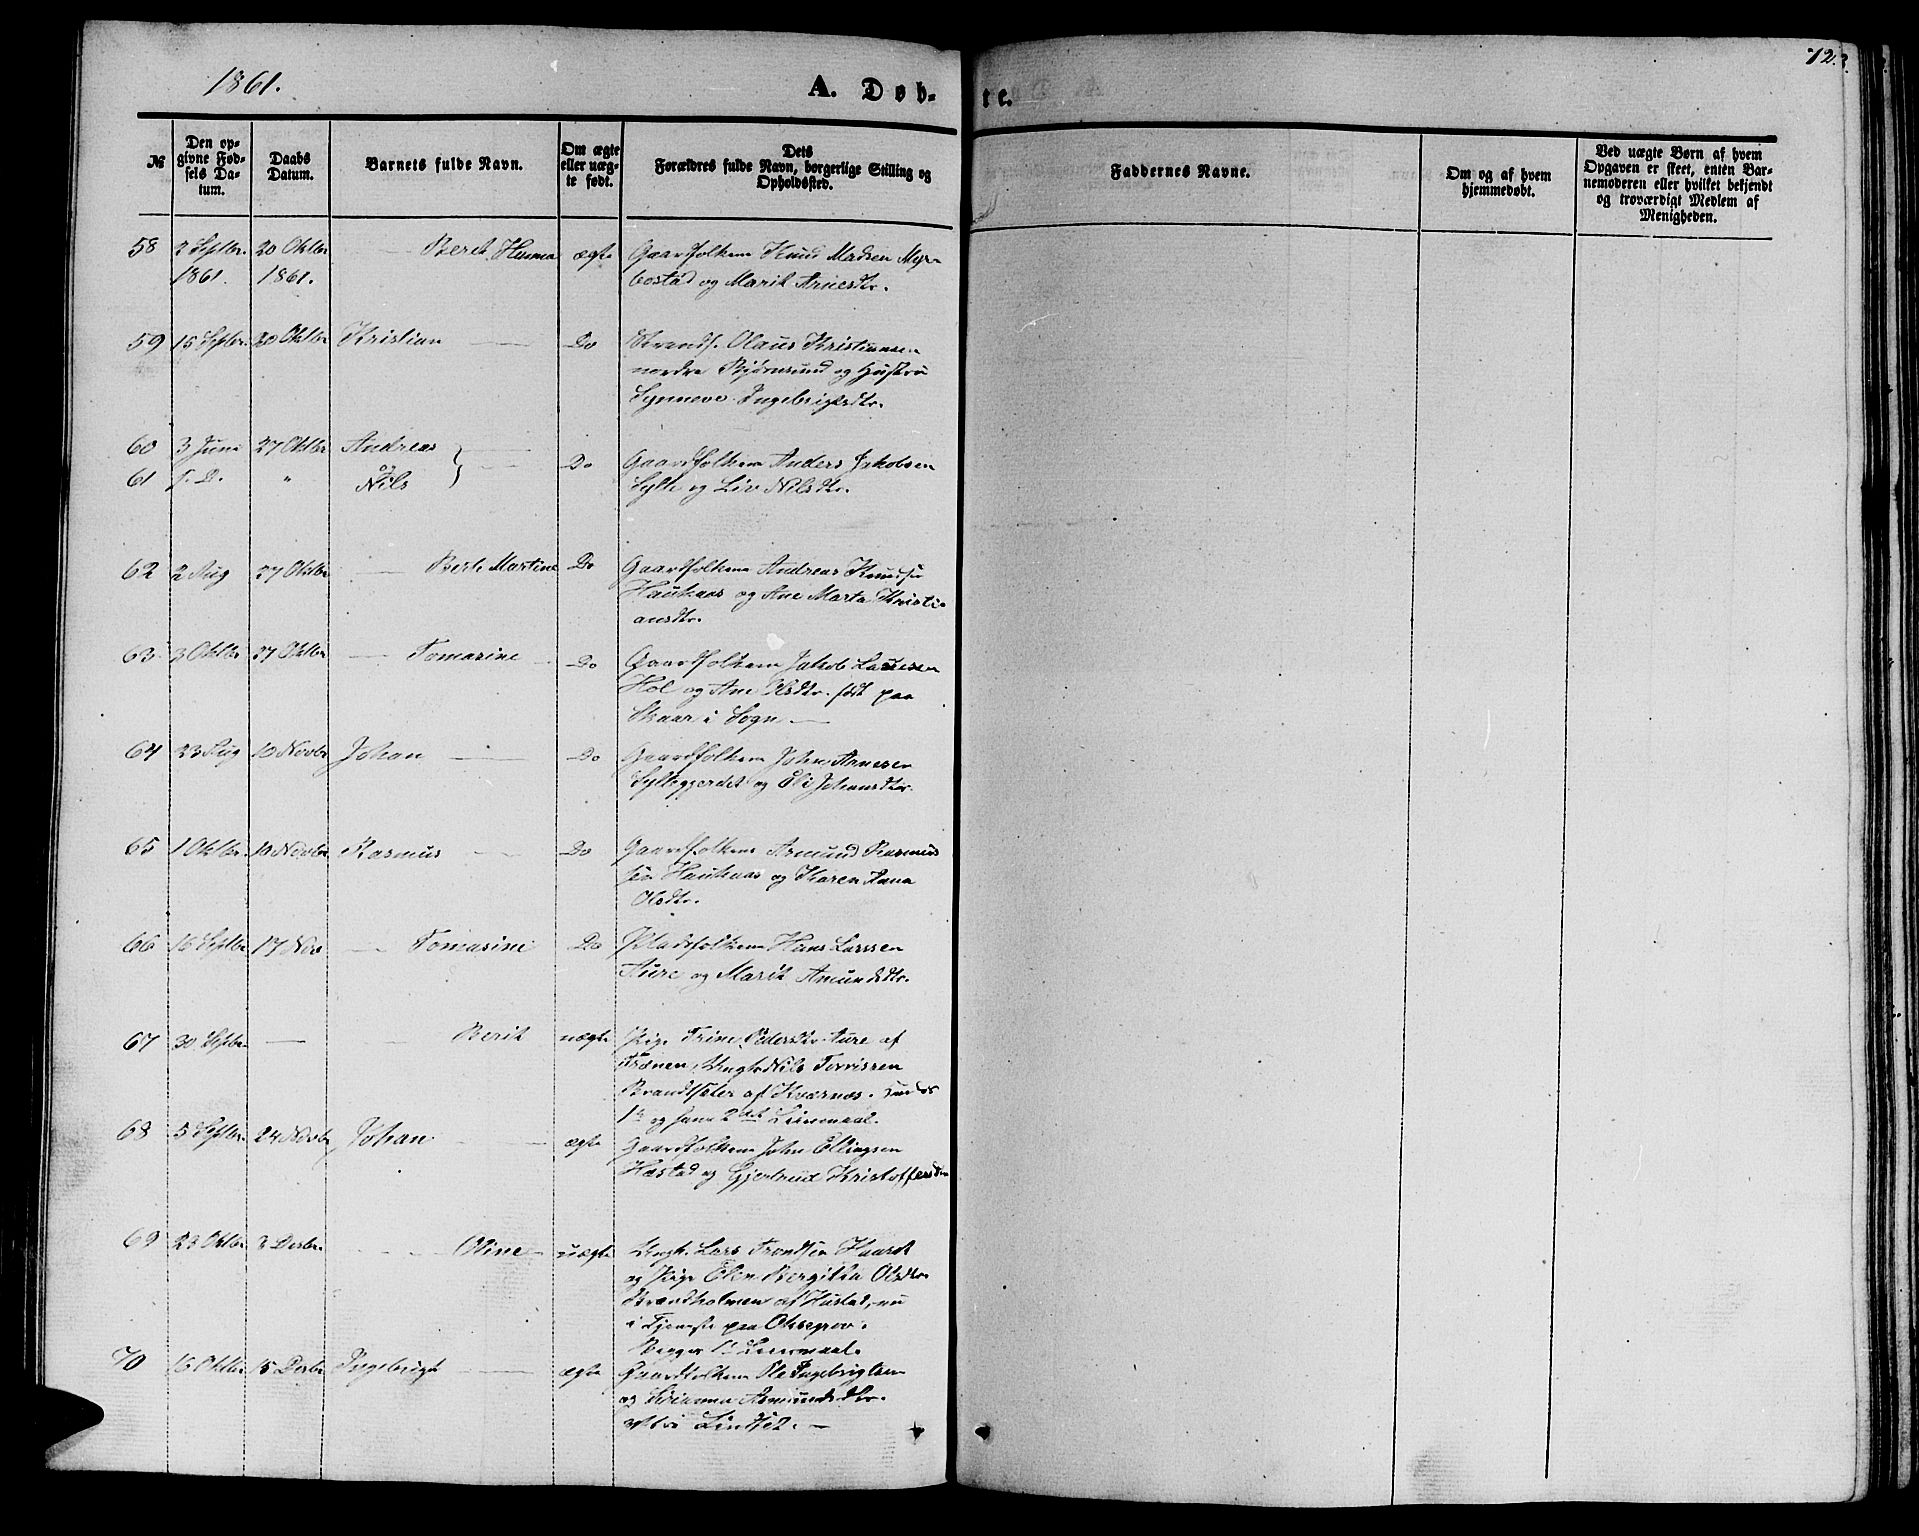 1861.
A. Døb-
te.
123.
№
Den op-
givne Fød-
sels Da-
tum.
Daabs
Datum.
Barnets fulde Navn.
Om ægte
eller uæg-
te født.
Dets
Forældres fulde Navn, borgerlige Stilling og
Opholdssted.
Faddernes Navne.
Om og af hvem
hjemmedøbt.
Ved uægte Børn af hvem
Opgaven er skeet, enten Bar-
nemoderen eller hvilket bekjendt
og troværdigt Medlem af
Menigheden.
58 2 Septbr. 20 Oktbr — Berit ægte Gaardfolkene Knud Madsen Myr-
1861. 1861. bostad og Marit Arnesdtr.
59 15 Septbr. 20 Oktbr Kristian — Do Strands. Olaus Kristiansen
nordre Bjørnsund og Hustru
Synneve Ingebrigtsdtr.
60 3 Juni 27 Oktbr Andreas — Do Gaardfolkene Anders Jakobsen
og
61 s. D. " Nils — Sylte og Liv Nilsdtr.
62 2 Aug 27 Oktbr — Berte Martine Do Gaardfolkene Andreas Knudsen
Haukaas og Ane Marta Kristi-
ansdtr.
63 3 Oktbr 27 Oktbr — Tomasine — Do Gaardfolkene Jakob Larsen
Hol og Ane Olsdtr. født paa
Skaar i Sogn —
64 23 Aug 10 Novbr Johan — Do Gaardfolkene John Arnesen
Syltegjerdet og Eli Johansdtr.
65 1 Oktbr. 10 Novbr Rasmus — Do Gaardfolkene Asmund Rasmus
sen Haukaas og Karen Anna
Olsdtr.
66 16 Septbr 17 Nov — Tomasine Do Pladsfolkene Hans Larssen
Aure og Marit Amundsdtr.
67 30 Septbr — — Berit uægte Pige Trine Pedersdtr Aure af
Frænen, Ungk. Nils
Brandtsæter af Kværnæs. Hendes
1ste og hans 2det Leiermaal.
68 5 Septbr. 24 Novbr Johan — ægte Gaardfolkene John Ellingsen
Hastad og Gjertrud Kristoffersdtr
69 23 Oktbr. 3 Decbr. — Oline — uægte Ungk. Lars Trondsen
og Pige Elen Bergitta Olsdtr
af Hustad, nu
i Tjeneste paa
Begges 1ste Leiermaal.
70 16 Oktbr. 15 Decbr Ingebrigt — ægte Gaardfolkene Ole Ingebrigtsen
og Asmundsdtr.
Lindset. —